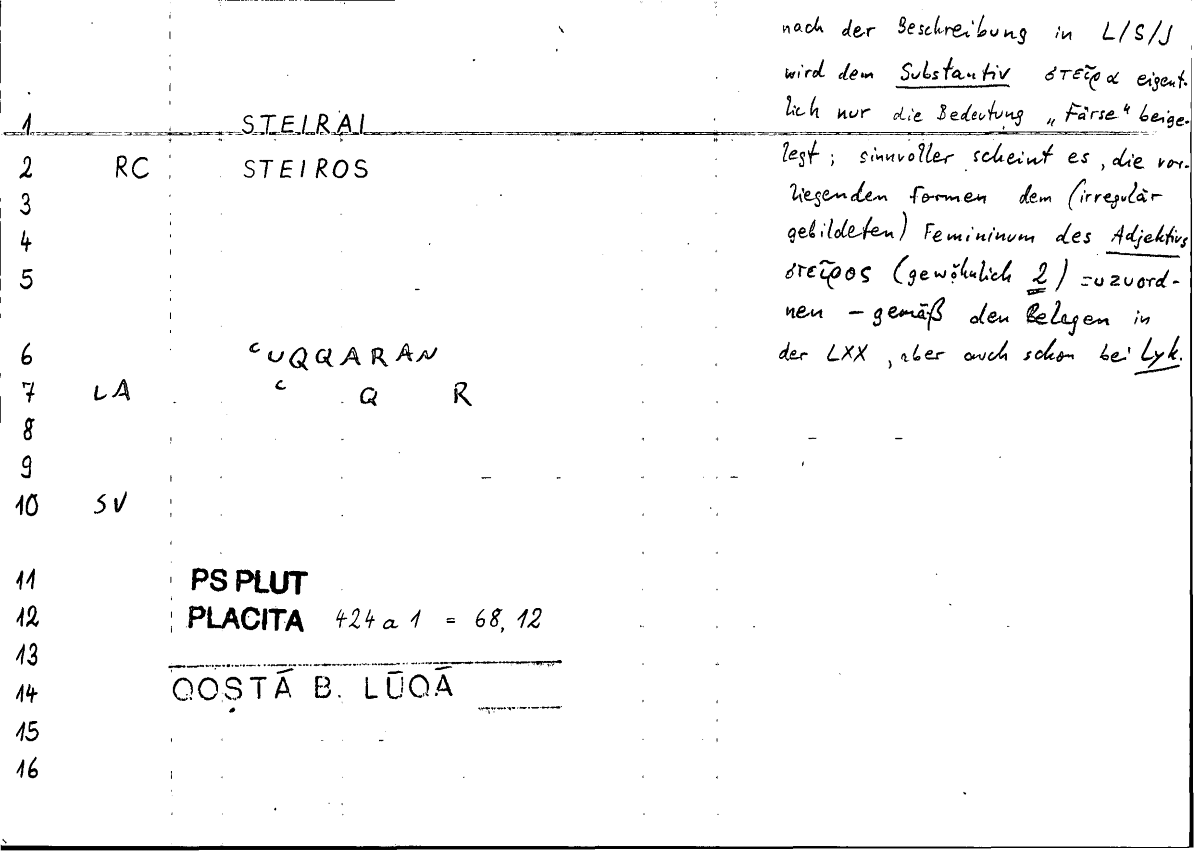 1 STEIRAI
2 RC STEIROS
3
4
5
6 ʿUQQARAN
7 LA ʿ Q R
8
9
10 SV
11 PS PLUT
12 PLACITA 424 a 1 = 68, 12
13
14 QOṢTĀ B. LŪQĀ
15
16
nach der Beschreibung in L/S/J
wird dem Substantiv στεῖρα eigent-
lich nur die Bedeutung „Färse“ beige-
legt ; sinnvoller scheint es, die vor-
liegenden Formen dem (irregulär
gebildeten) Femininum des Adjektivs
στεῖρος (gewöhnlich 2) zuzuord-
nen – gemäß den Belegen in
der LXX, aber auch schon bei Lyk.